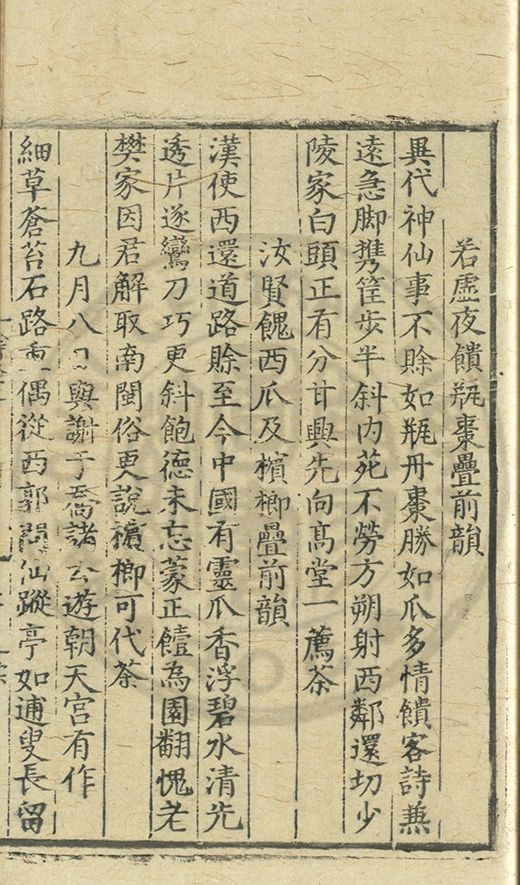 若虛夜饋瓶棗疊前韻
異代神仙事不賒如瓶丹棗勝如瓜多情饋客詩兼
遠急脚携筐步半斜内苑不勞方朔射西鄰還切少
陵家白頭正有分甘興先向髙堂一薦茶
汝賢餽西瓜及檳榔疊前韻
漢使西還道路賒至今中國有靈瓜香浮碧水清先
透片遂鸞刀巧更斜飽德未忘蒙正饐為園翻愧老
樊家因君解取南閩俗更說檳榔可代茶
九月八日與謝于喬諸公遊朝天宮有作
細草蒼苔石路重偶從西郭問仙蹤亭如逋叟長留